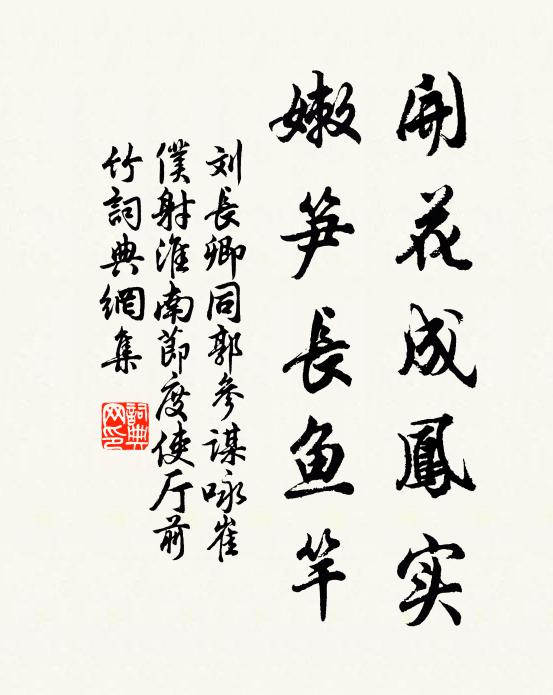 開花成鳳实
嫩笋長鱼竿
刘長卿同郭參谋咏崔
僕射淮南節度使厅前
竹詞典網集
詞典网印